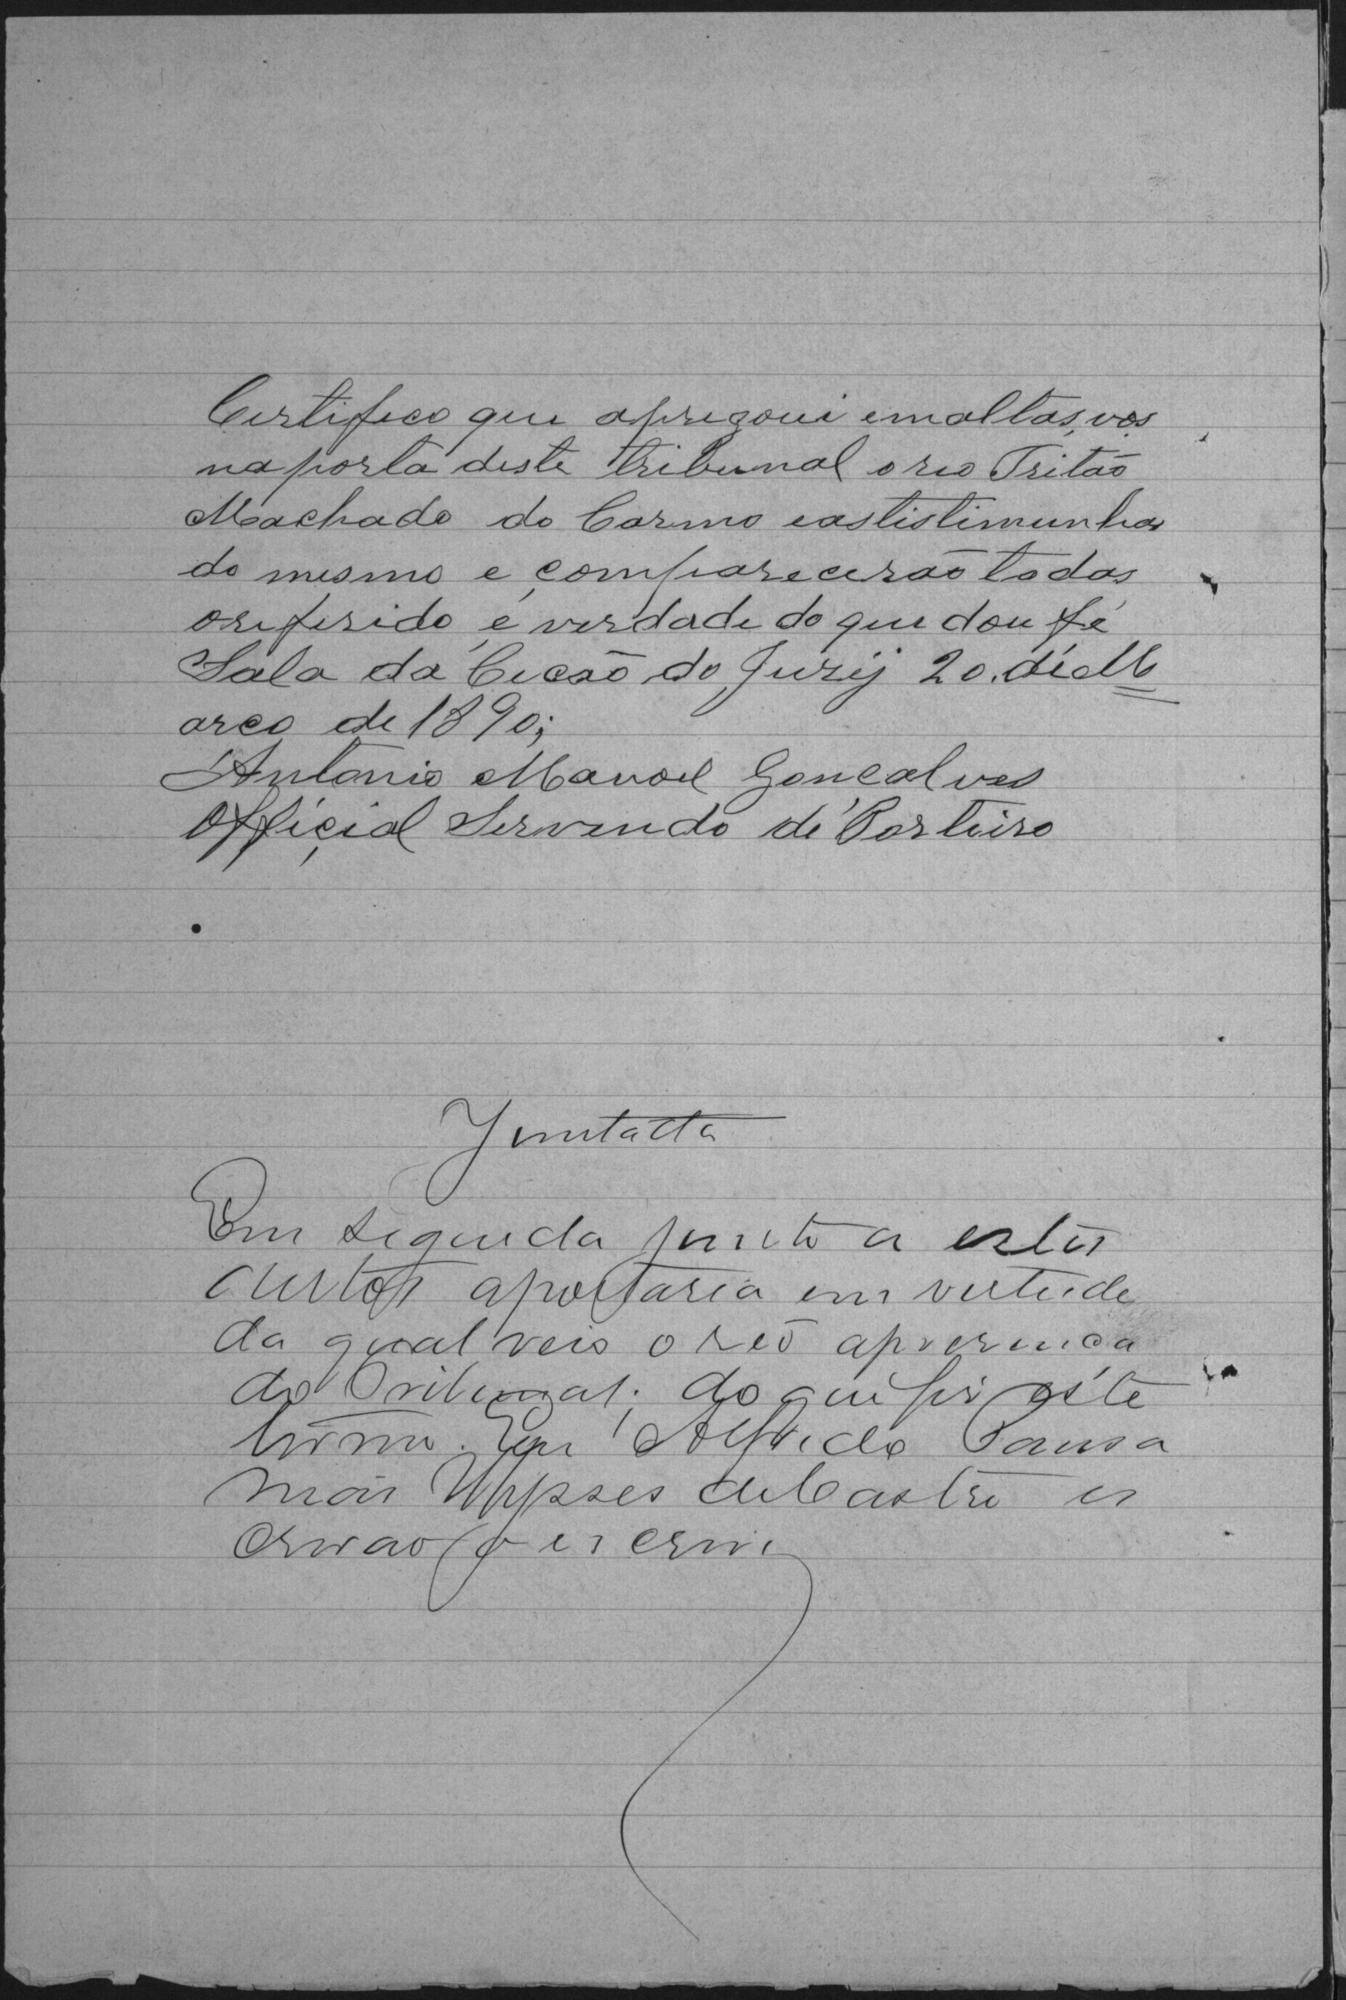 Certifico que apregoui em altas, vos
na porta deste tribunal o reo Tritão
Machado do Carmo e as tistimunhas
do mesmo e comparecerão todas
o referido é verdade do que dou fé
Sala da Cecão do Jurÿ 20. de M
arco de 1890;
Antonio Manoel Goncalves
Official Servendo de Porteiro
Juntatta
Em seguida junto a estes
autos aportaria em vertude
da qual veio o reo apresença
do Tribunal; do que fiz este
termo. Eu Alfrido
Ulysses de Castro es
crivao o escrivi